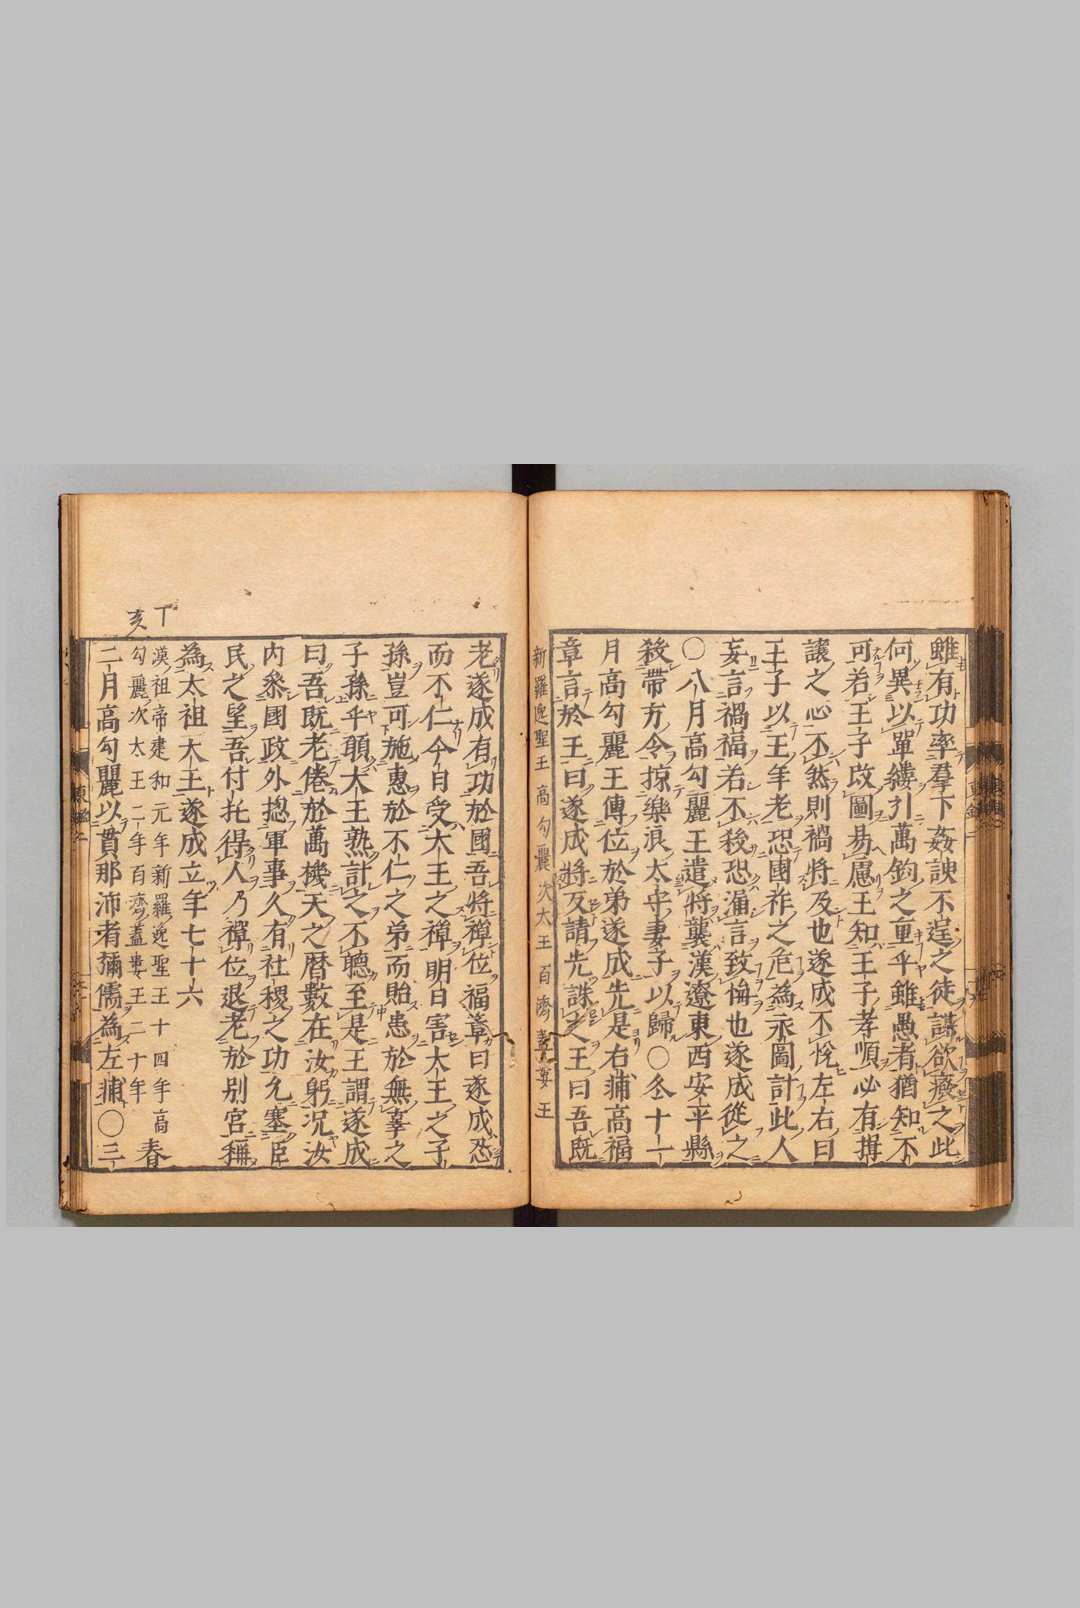 雖有功率羣下姦諛不逞之徒謀欲癈之此
何異以單縷引萬鈞之重乎雖愚者猶知不
可若王子改圖易慮王知王子孝順必有揖
讓之心不然則禍將及也遂成不悅左右曰
王子以王年老恐國祚之危為永圖計此人
妄言禍福若不殺恐漏言致悔也遂成從之
○八月高勾麗王遣將襲漢遼東西安平縣
殺帶方令掠樂浪太守妻子以歸○冬十一
月高勾麗王傳位於弟遂成先是右輔高福
章言於王曰遂成將反請先誅之王曰吾既
新羅逸聖王 高勾麗次大王 百濟蓋婁王
老遂成有功於國吾將禪位福章曰遂成忍
而不仁今日受大王之禪明日害大王之子
孫豈可施惠於不仁之弟而貽患於無辜之
子孫乎願大王熟計之不聽至是王謂遂成
曰吾既老倦於萬機天之曆數在汝躬况汝
內叅國政外摠軍事久有社稷之功允塞臣
民之望吾付托得人乃禪位退老於別宮稱
為太祖大王遂成立年七十六
丁亥
漢祖帝建和元年新羅逸聖王十四年高
勾麗次大王二年百濟蓋婁王二十年
春
二月高勾麗以貫那沛者彌儒為左輔○三